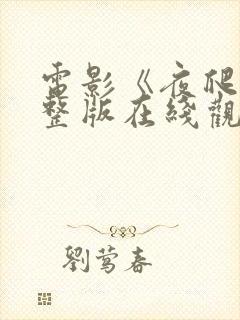 電影《夜爬
整版在綫觀
劉莺春